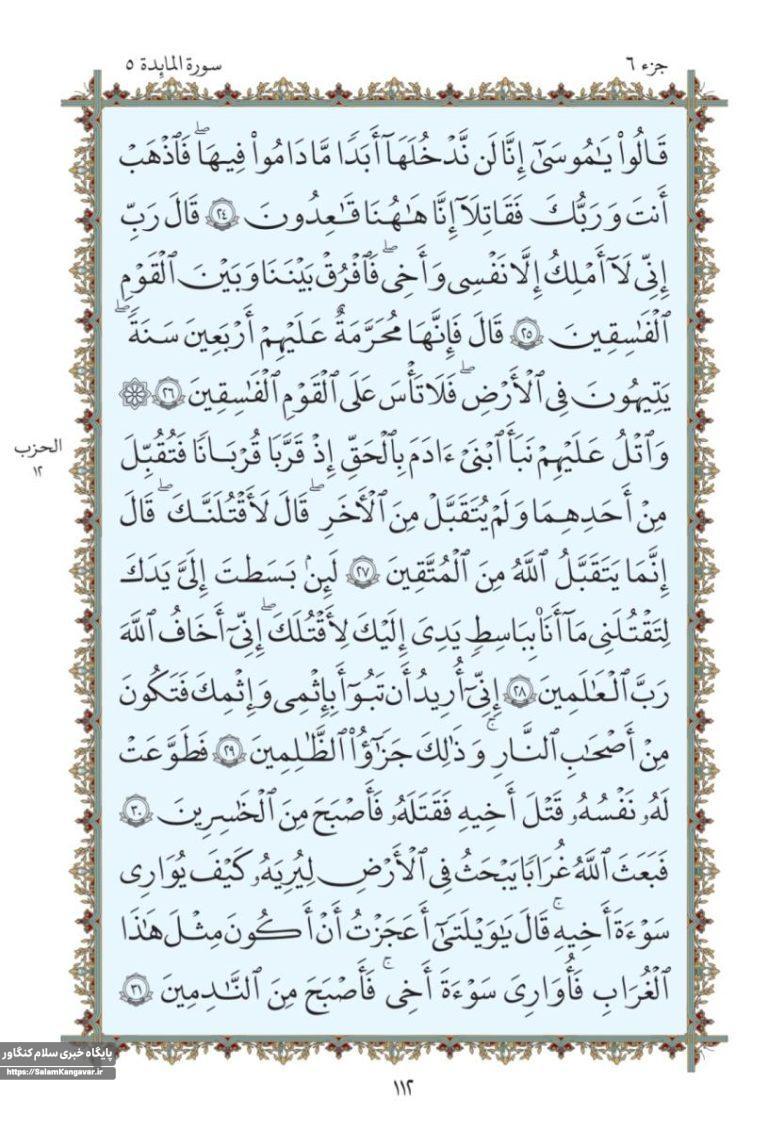 جزء ٦
سورة المائدة ٥
قَالُوا۟ يَـٰمُوسَىٰٓ إِنَّا لَن نَّدْخُلَهَآ أَبَدًا مَّا دَامُوا۟ فِيهَا ۖ فَٱذْهَبْ
أَنتَ وَرَبُّكَ فَقَـٰتِلَآ إِنَّا هَـٰهُنَا قَـٰعِدُونَ ٢٤ قَالَ رَبِّ
إِنِّى لَآ أَمْلِكُ إِلَّا نَفْسِى وَأَخِى ۖ فَٱفْرُقْ بَيْنَنَا وَبَيْنَ ٱلْقَوْمِ
ٱلْفَـٰسِقِينَ ٢٥ قَالَ فَإِنَّهَا مُحَرَّمَةٌ عَلَيْهِمْ أَرْبَعِينَ سَنَةً ۛ
يَتِيهُونَ فِى ٱلْأَرْضِ ۖ فَلَا تَأْسَ عَلَى ٱلْقَوْمِ ٱلْفَـٰسِقِينَ ٢٦ ۞
وَٱتْلُ عَلَيْهِمْ نَبَأَ ٱبْنَىْ ءَادَمَ بِٱلْحَقِّ إِذْ قَرَّبَا قُرْبَانًا فَتُقُبِّلَ
مِنْ أَحَدِهِمَا وَلَمْ يُتَقَبَّلْ مِنَ ٱلْأَخَرِ ۖ قَالَ لَأَقْتُلَنَّكَ ۖ قَالَ
إِنَّمَا يَتَقَبَّلُ ٱللَّهُ مِنَ ٱلْمُتَّقِينَ ٢٧ لَئِنۢ بَسَطتَ إِلَىَّ يَدَكَ
لِتَقْتُلَنِى مَآ أَنَا۠ بِبَاسِطٍ يَدِىَ إِلَيْكَ لِأَقْتُلَكَ ۖ إِنِّىٓ أَخَافُ ٱللَّهَ
رَبَّ ٱلْعَـٰلَمِينَ ٢٨ إِنِّىٓ أُرِيدُ أَن تَبُوٓأَ بِإِثْمِى وَإِثْمِكَ فَتَكُونَ
مِنْ أَصْحَـٰبِ ٱلنَّارِ ۚ وَذَٰلِكَ جَزَٰٓؤُا۟ ٱلظَّـٰلِمِينَ ٢٩ فَطَوَّعَتْ
لَهُۥ نَفْسُهُۥ قَتْلَ أَخِيهِ فَقَتَلَهُۥ فَأَصْبَحَ مِنَ ٱلْخَـٰسِرِينَ ٣٠
فَبَعَثَ ٱللَّهُ غُرَابًا يَبْحَثُ فِى ٱلْأَرْضِ لِيُرِيَهُۥ كَيْفَ يُوَٰرِى
سَوْءَةَ أَخِيهِ ۚ قَالَ يَـٰوَيْلَتَىٰٓ أَعَجَزْتُ أَنْ أَكُونَ مِثْلَ هَـٰذَا
ٱلْغُرَابِ فَأُوَٰرِىَ سَوْءَةَ أَخِى ۚ فَأَصْبَحَ مِنَ ٱلنَّـٰدِمِينَ ٣١
الحزب
١٢
١١٢
پایگاه خبری سلام کنگاور
https://SalamKangavar.ir